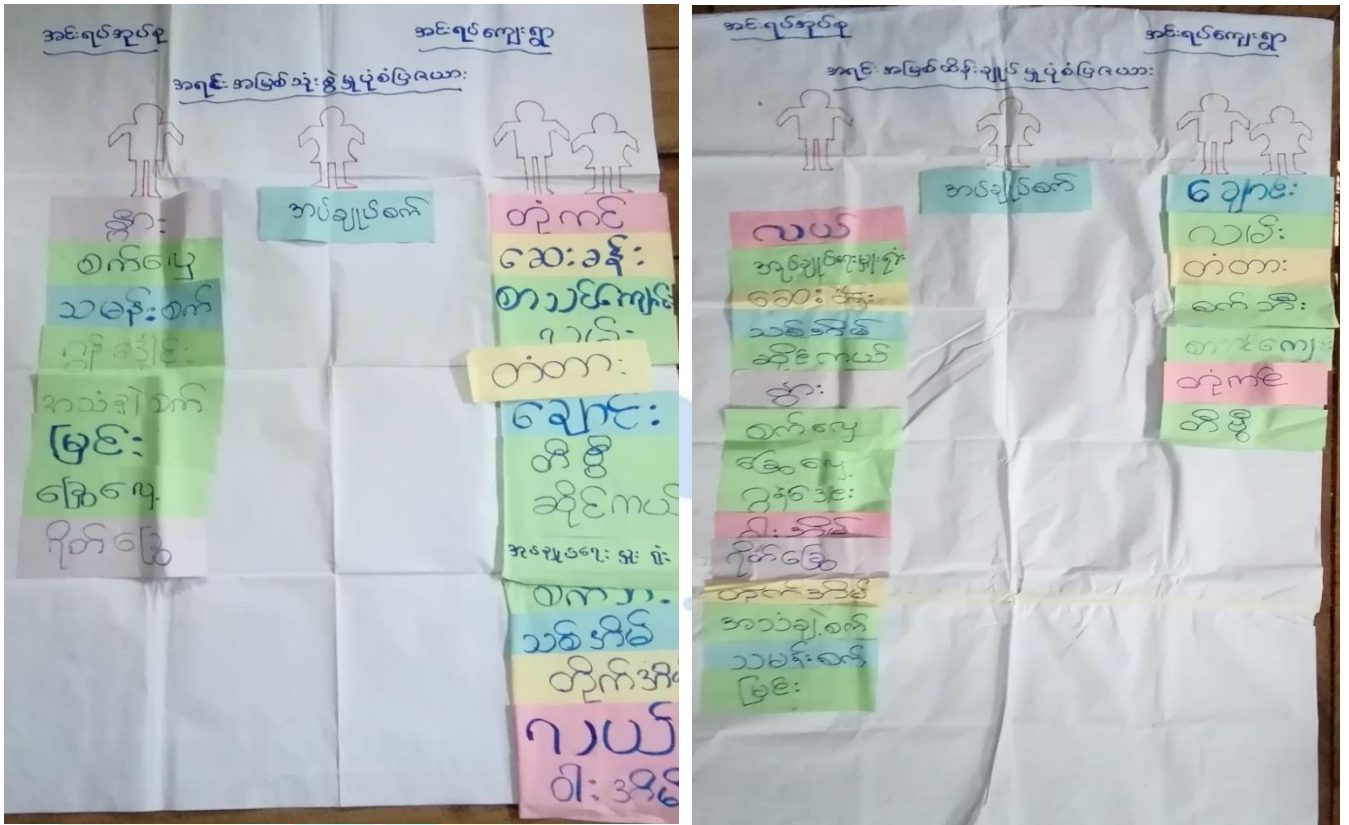 အင်းရပ်အုပ်စု
အင်းရပ်ကျေးရွာ
အရင်းအမြစ်သုံးစွဲမှုပုံစံပြဇယား
နွား
စက်လှေ
သမန်းစက်
အသံချဲ့စက်
မြင်း
ခြွေလှေ့
ဂိုတ်ခြွေ
အပ်ချုပ်စက်
တုံကင်
ဆေးခန်း
စာသင်ကျောင်း
လမ်း
တံတား
ချောင်း
တီဗွီ
ဆိုင်ကယ်
အုပ်ချုပ်ရေးမှူးရုံး
သစ်အိမ်
တိုက်အိမ်
လယ်
ဝါးအိမ်
အင်းရပ်အုပ်စု
အင်းရပ်ကျေးရွာ
အရင်းအမြစ်ထိန်းချုပ်မှုပုံစံပြဇယား
လယ်
အုပ်ချုပ်ရေးမှူးရုံး
ဆေးခန်း
သစ်အိမ်
ဆိုင်ကယ်
နွား
စက်လှေ
ခြွေလှေ့
ဝါးအိမ်
ဂိုတ်ခြွေ
တိုက်အိမ်
အသံချဲ့စက်
သမန်းစက်
မြင်း
အပ်ချုပ်စက်
ချောင်း
လမ်း
တံတား
စက်ဘီး
တုံကင်
တီဗွီ